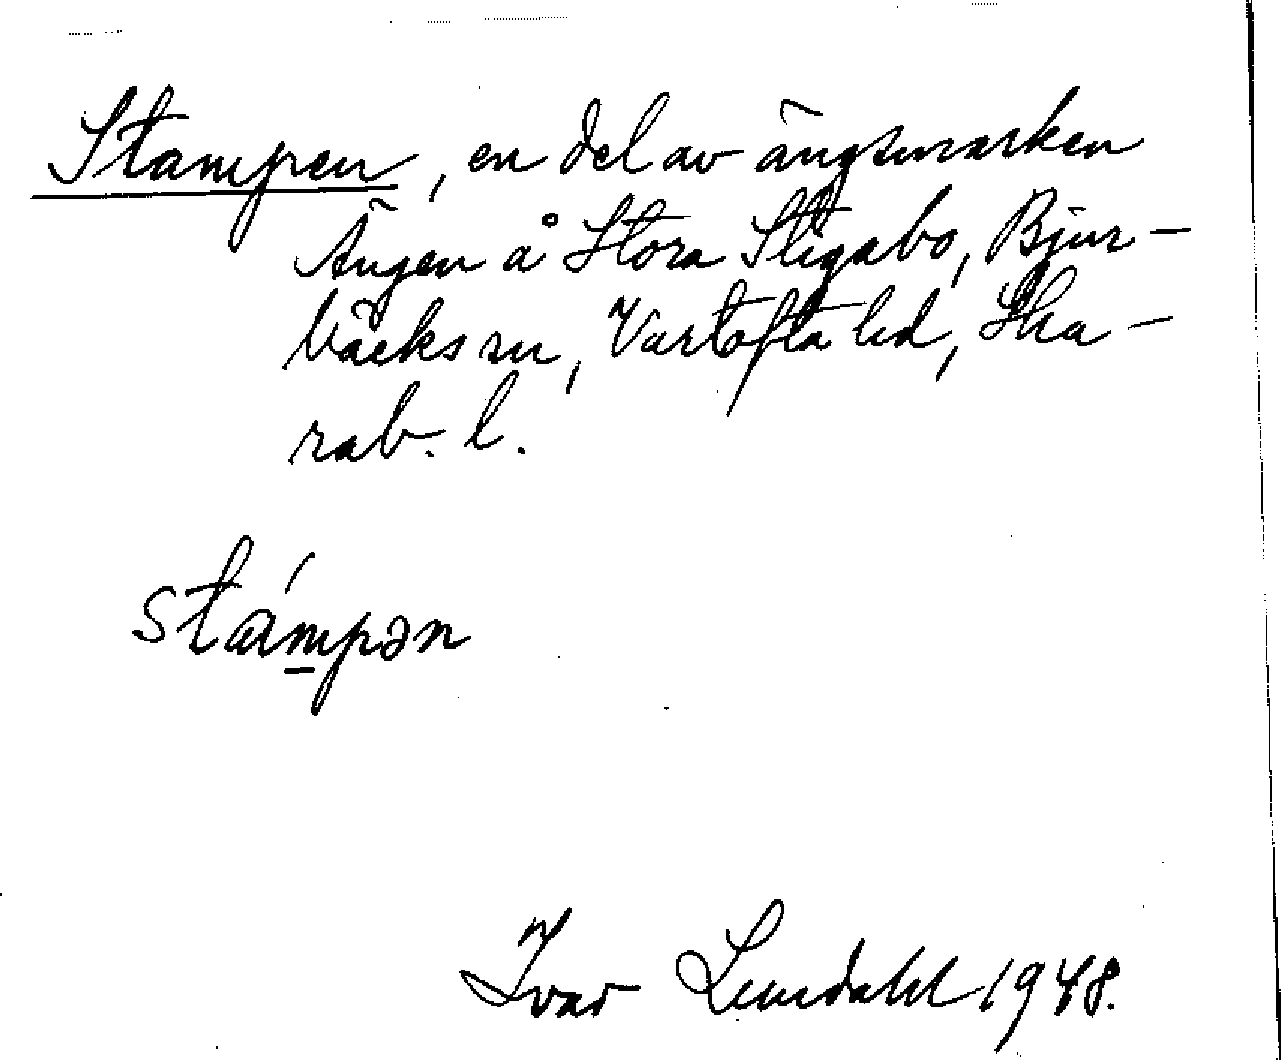 Stampen, en del av ängsmarken
Ängen å Stora Stigabo, Bjur-
bäcks sn, Vartofta hd, Ska-
rab. l.
stám̲pən
Ivar Lundahl 1948.